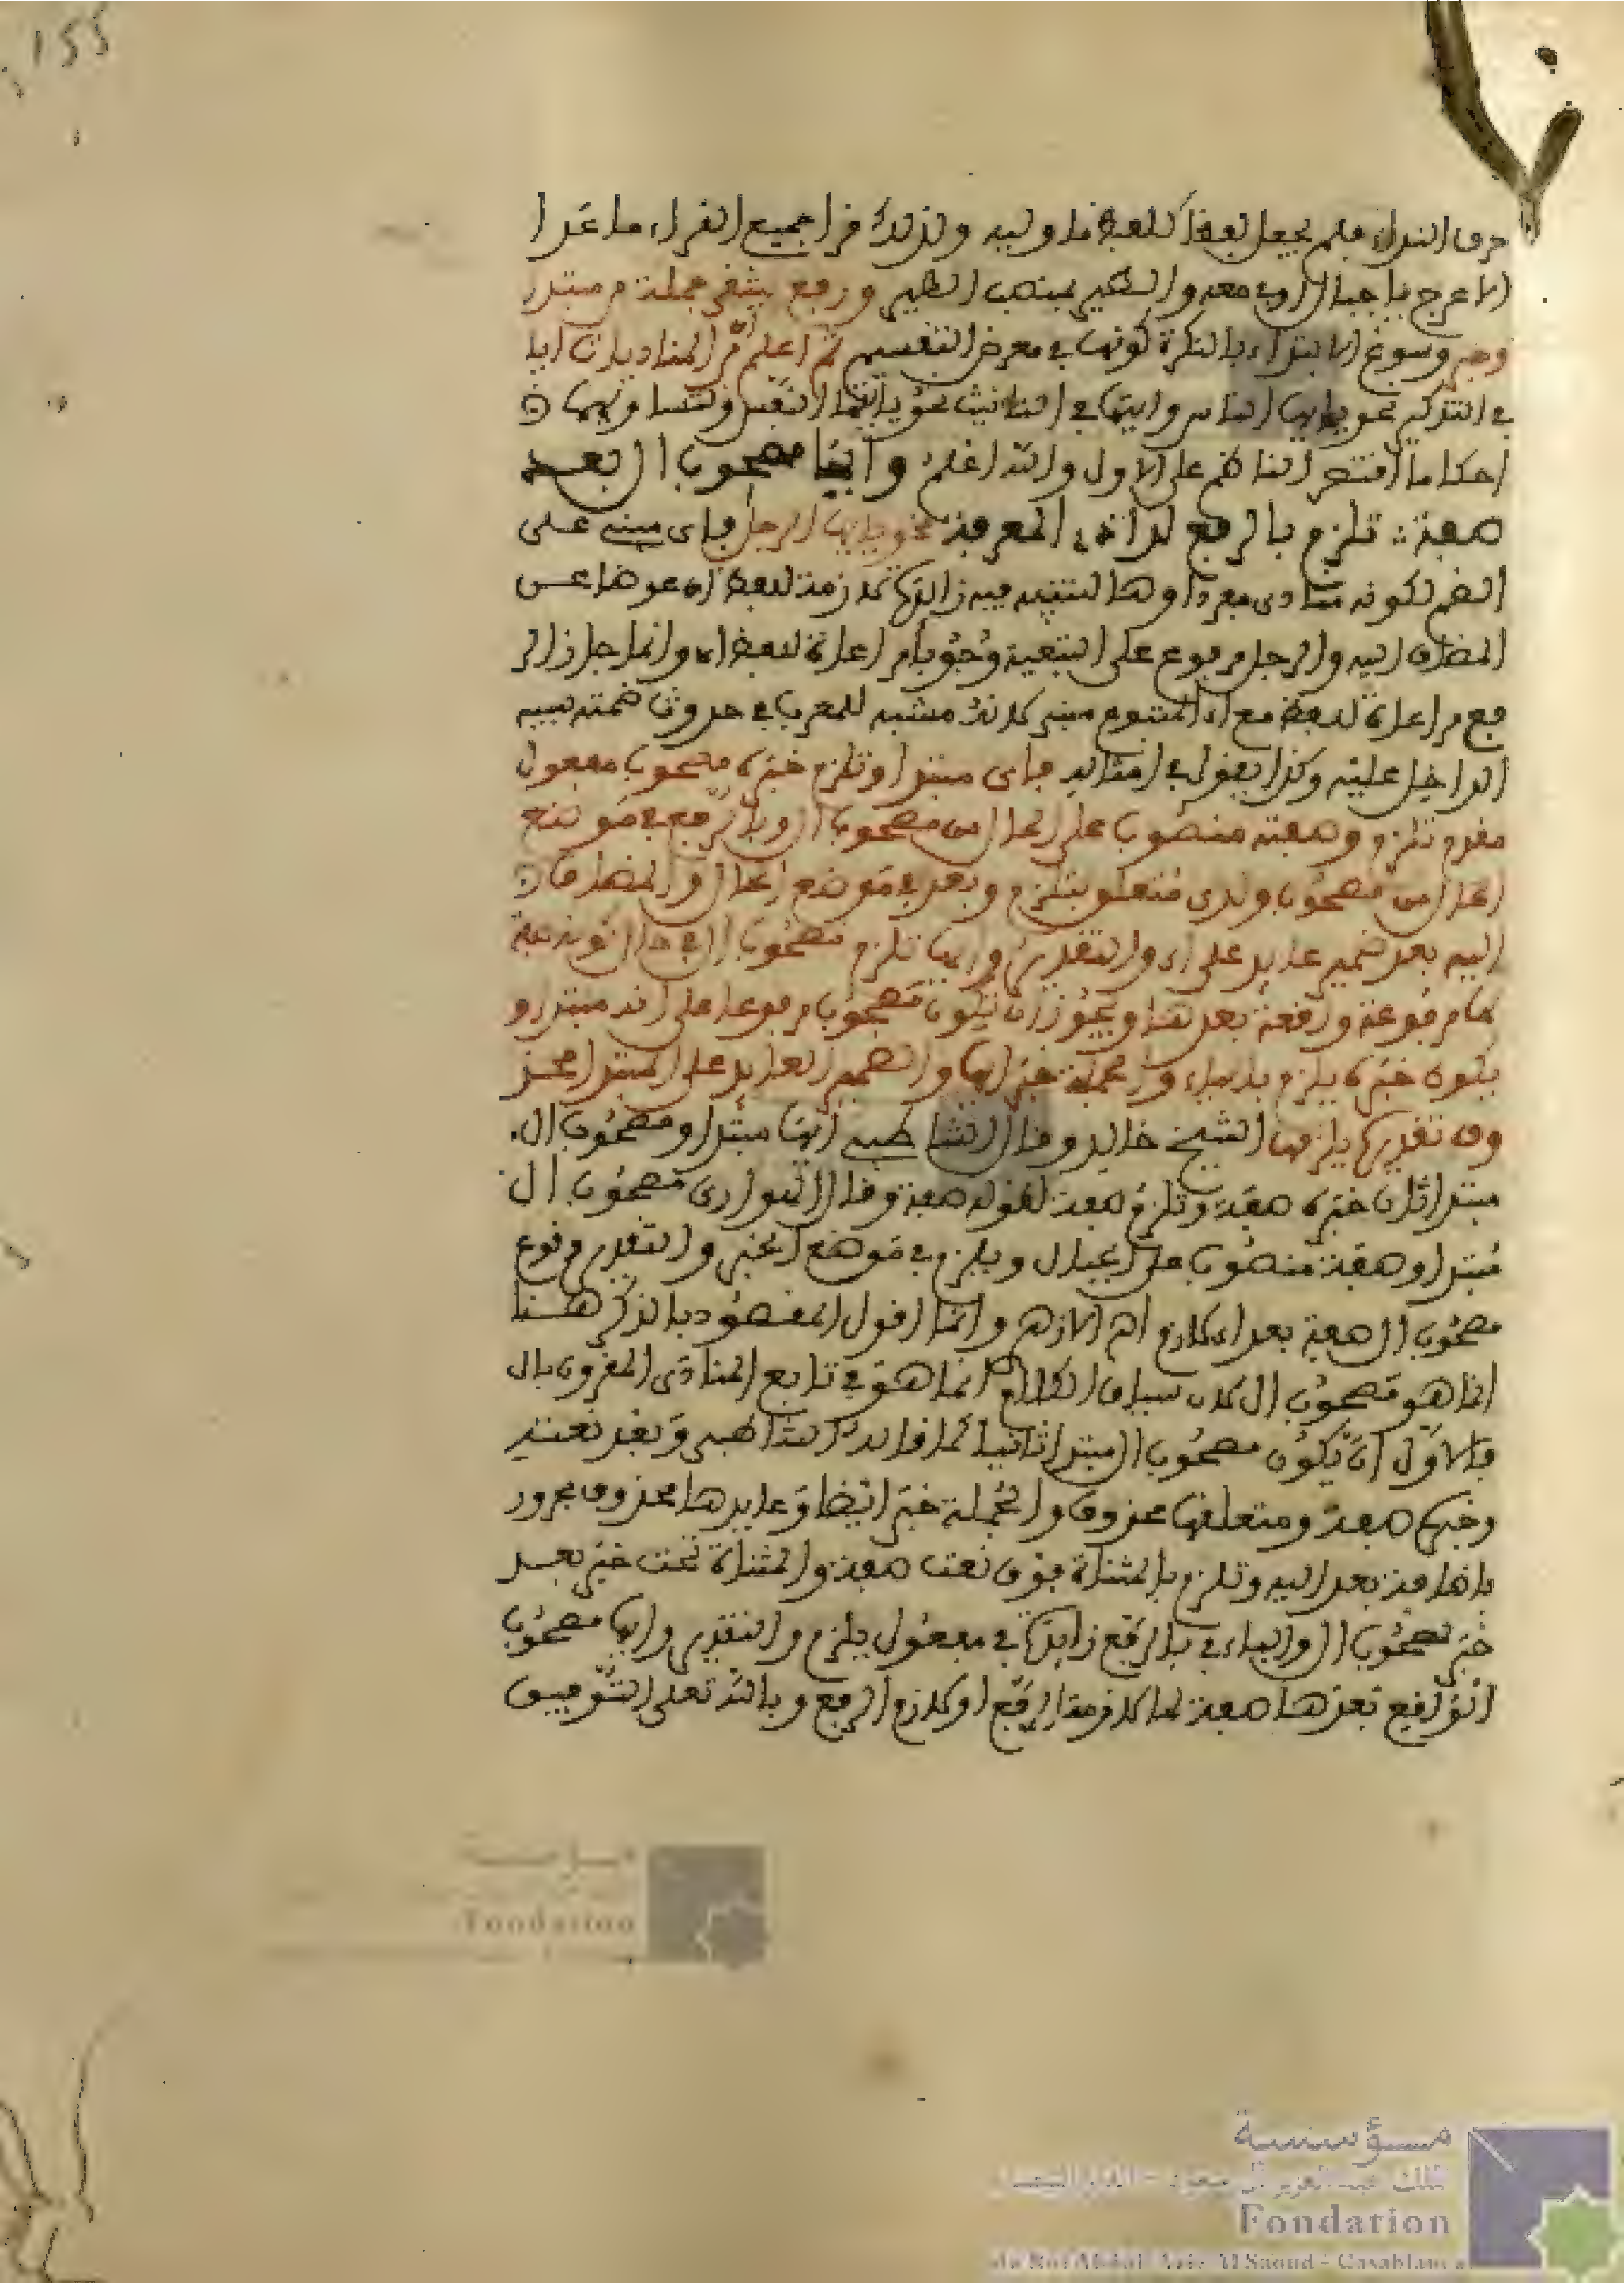 155
حرف النداء فلم يجعل لفظا كلفظ ما وليه ولذلك قرأ جميع القراء ما عدا
الاعرج يا جبال أوبي معه والطير بنصب الطير ورفع ينتقى جملة من مبتدإ
وخبر وسوغ الابتداء بالنكرة كونها في معرض التقسيم ثم اعلم أن المنادى
في التذكير نحو يا أيها الناس وايتها في التانيث نحو يا أيتها النفس وتساويهما
احكاما اقتصر الناظم على الاول والله اعلم وأيها مصحوب ال بعد
صفة تلزم بالرفع لدى ذي المعرفة نحو يا أيها الرجل فأي مبني على
الضم لكونه منادى مفردا وها للتنبيه فيه زائدة لازمة للفظ أي عوضا عن
المضاف اليه والرجل مرفوع على التبعية وجوبا مراعاة للفظ اي وانما جاز الر
فع مراعاة للفظ مع ان المتبوع مبني لانه مشبه للمعرب في حدوث ضمته بسبب
الداخل عليه وكذا يقول في امثاله فأي مبتدا وتلزم خبره مصحوب مفعول
مقدم تلزم وصفة منصوب على الحال من مصحوب ال وبالرفع في موضع
الحال من مصحوب ولدى متعلق بتلزم وبعد في موضع الحال والمضاف
اليه بعد ضمير عايد على اي والتقدير وايها تلزم مصحوب ال في حال كونه صفة
لها مرفوعة واقعة بعدها ويجوز أن يكون مصحوب مرفوعا على انه مبتدا و
يكون خبره يلزم بالياء والجملة خبر ايها والضمير العايد على المبتدا محذ
وف تقديره يلزمها الشيخ خالد وقال الشاطبي ايها مبتدا ومصحوب ال
مبتدا ثان خبره صفة وتلزم صفة لقوله صفة وقال الهواري مصحوب ال
مبتدا وصفة منصوب على الحال ويلزم في موضع الخبر والتقدير وقوع
مصحوب ال صفة بعد اي لازم اهـ الازهري وانما اقول المقصود بالذكر هنا
انما هو مصحوب ال لان سياق الكلام انما هو في تابع المنادى المقرون بال
فالاول أن يكون مصحوب ال مبتدا ثانيا كما قاله الشاطبي وبعد نعته
وخبره صفة ومتعلقها محذوف والجملة خبر ايضا وعايدها محذوف مجرور
باضافة بعد اليه وتلزم بالمثناة فوق نعت صفة والمثناة تحت خبر بعد
خبر لمصحوب ال والباء في بالرفع زايدة في مفعول يلزم والتقدير وايها مصحوب
الواقع بعدها صفة لها لازمة الرفع او لازم الرفع وبالله تعلى التوفيق
مؤسسة
الملك عبد العزيز آل سعود - الدار البيضاء
Fondation
du Roi Abdul-Aziz Al Saoud - Casablanca
Fondation